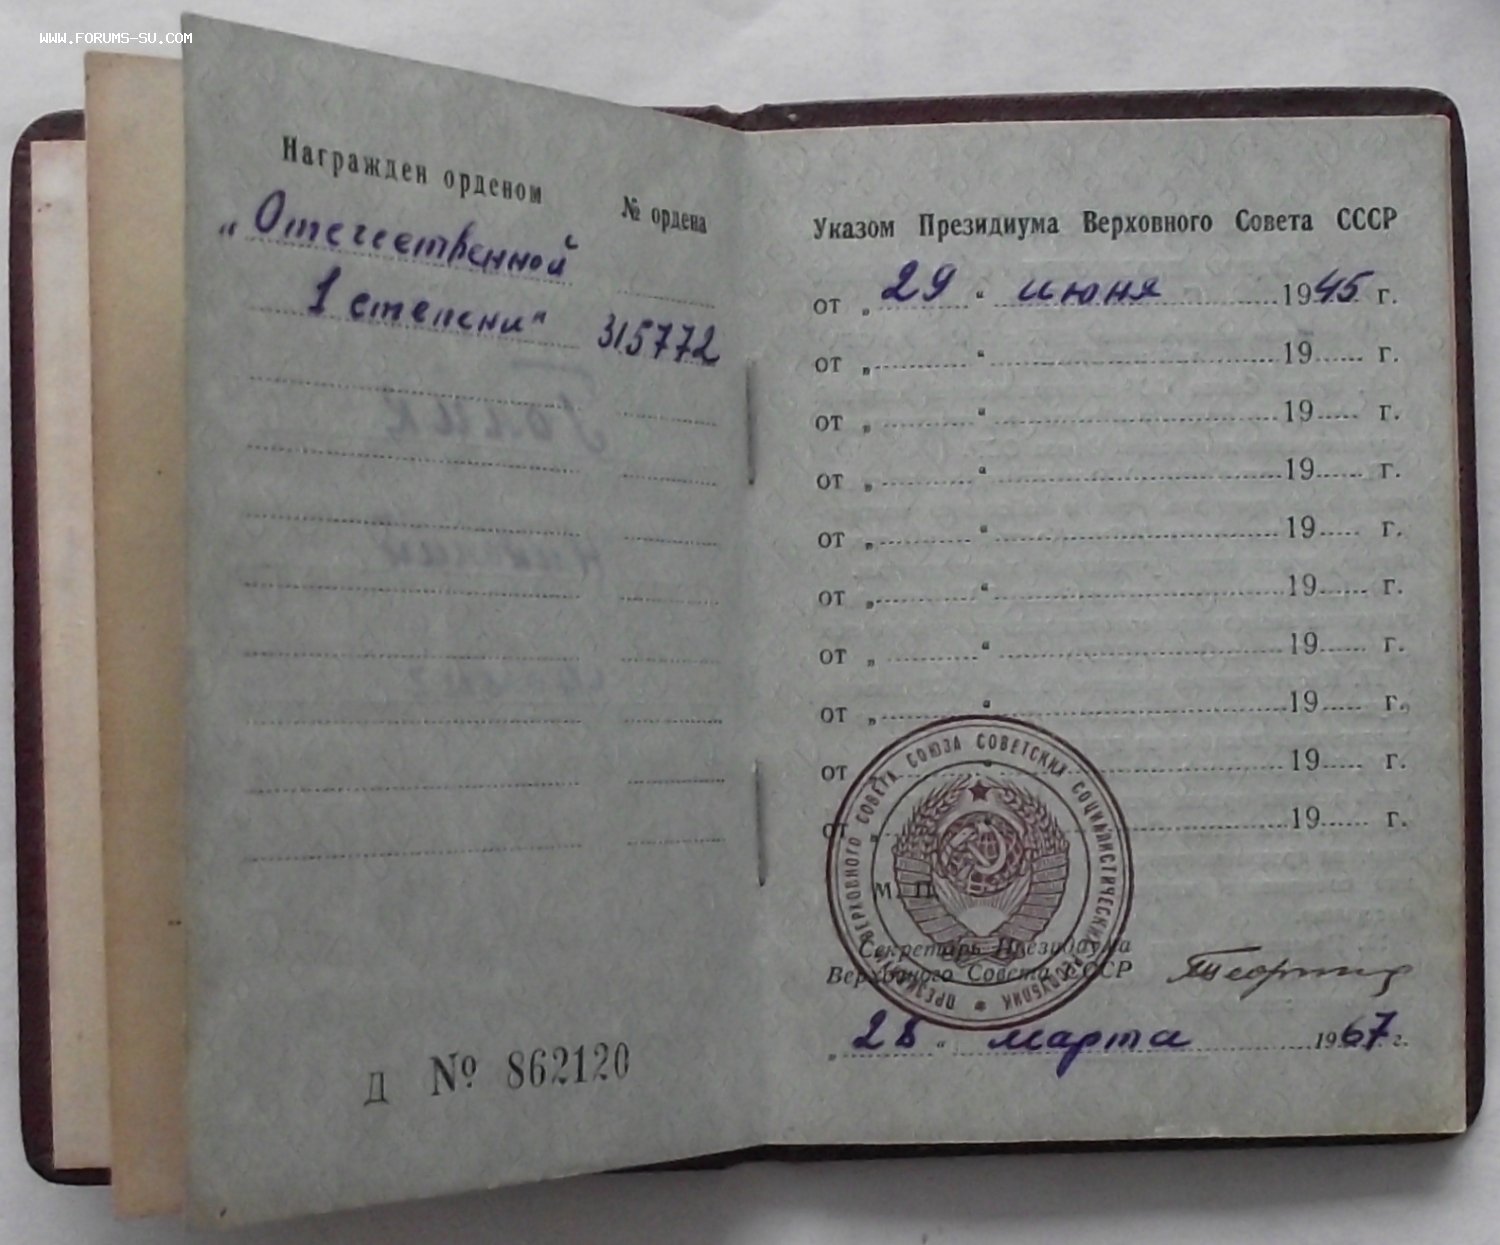 www.forums-su.com
Награжден орденом № ордена
„Отечественной
1 степени" 315772
Д № 862120
Указом Президиума Верховного Совета СССР
от „ 29 " июня 1945 г.
от „ " 19 г.
от „ " 19 г.
от „ " 19 г.
от „ " 19 г.
от „ " 19 г.
от „ " 19 г.
от „ " 19 г.
от „ " 19 г.
от „ " 19 г.
М. П.
ПРЕЗИДИУМ ВЕРХОВНОГО СОВЕТА СОЮЗА СОВЕТСКИХ СОЦИАЛИСТИЧЕСКИХ РЕСПУБЛИК
Секретарь Президиума
Верховного Совета СССР
„ 28 " марта 1967 г.